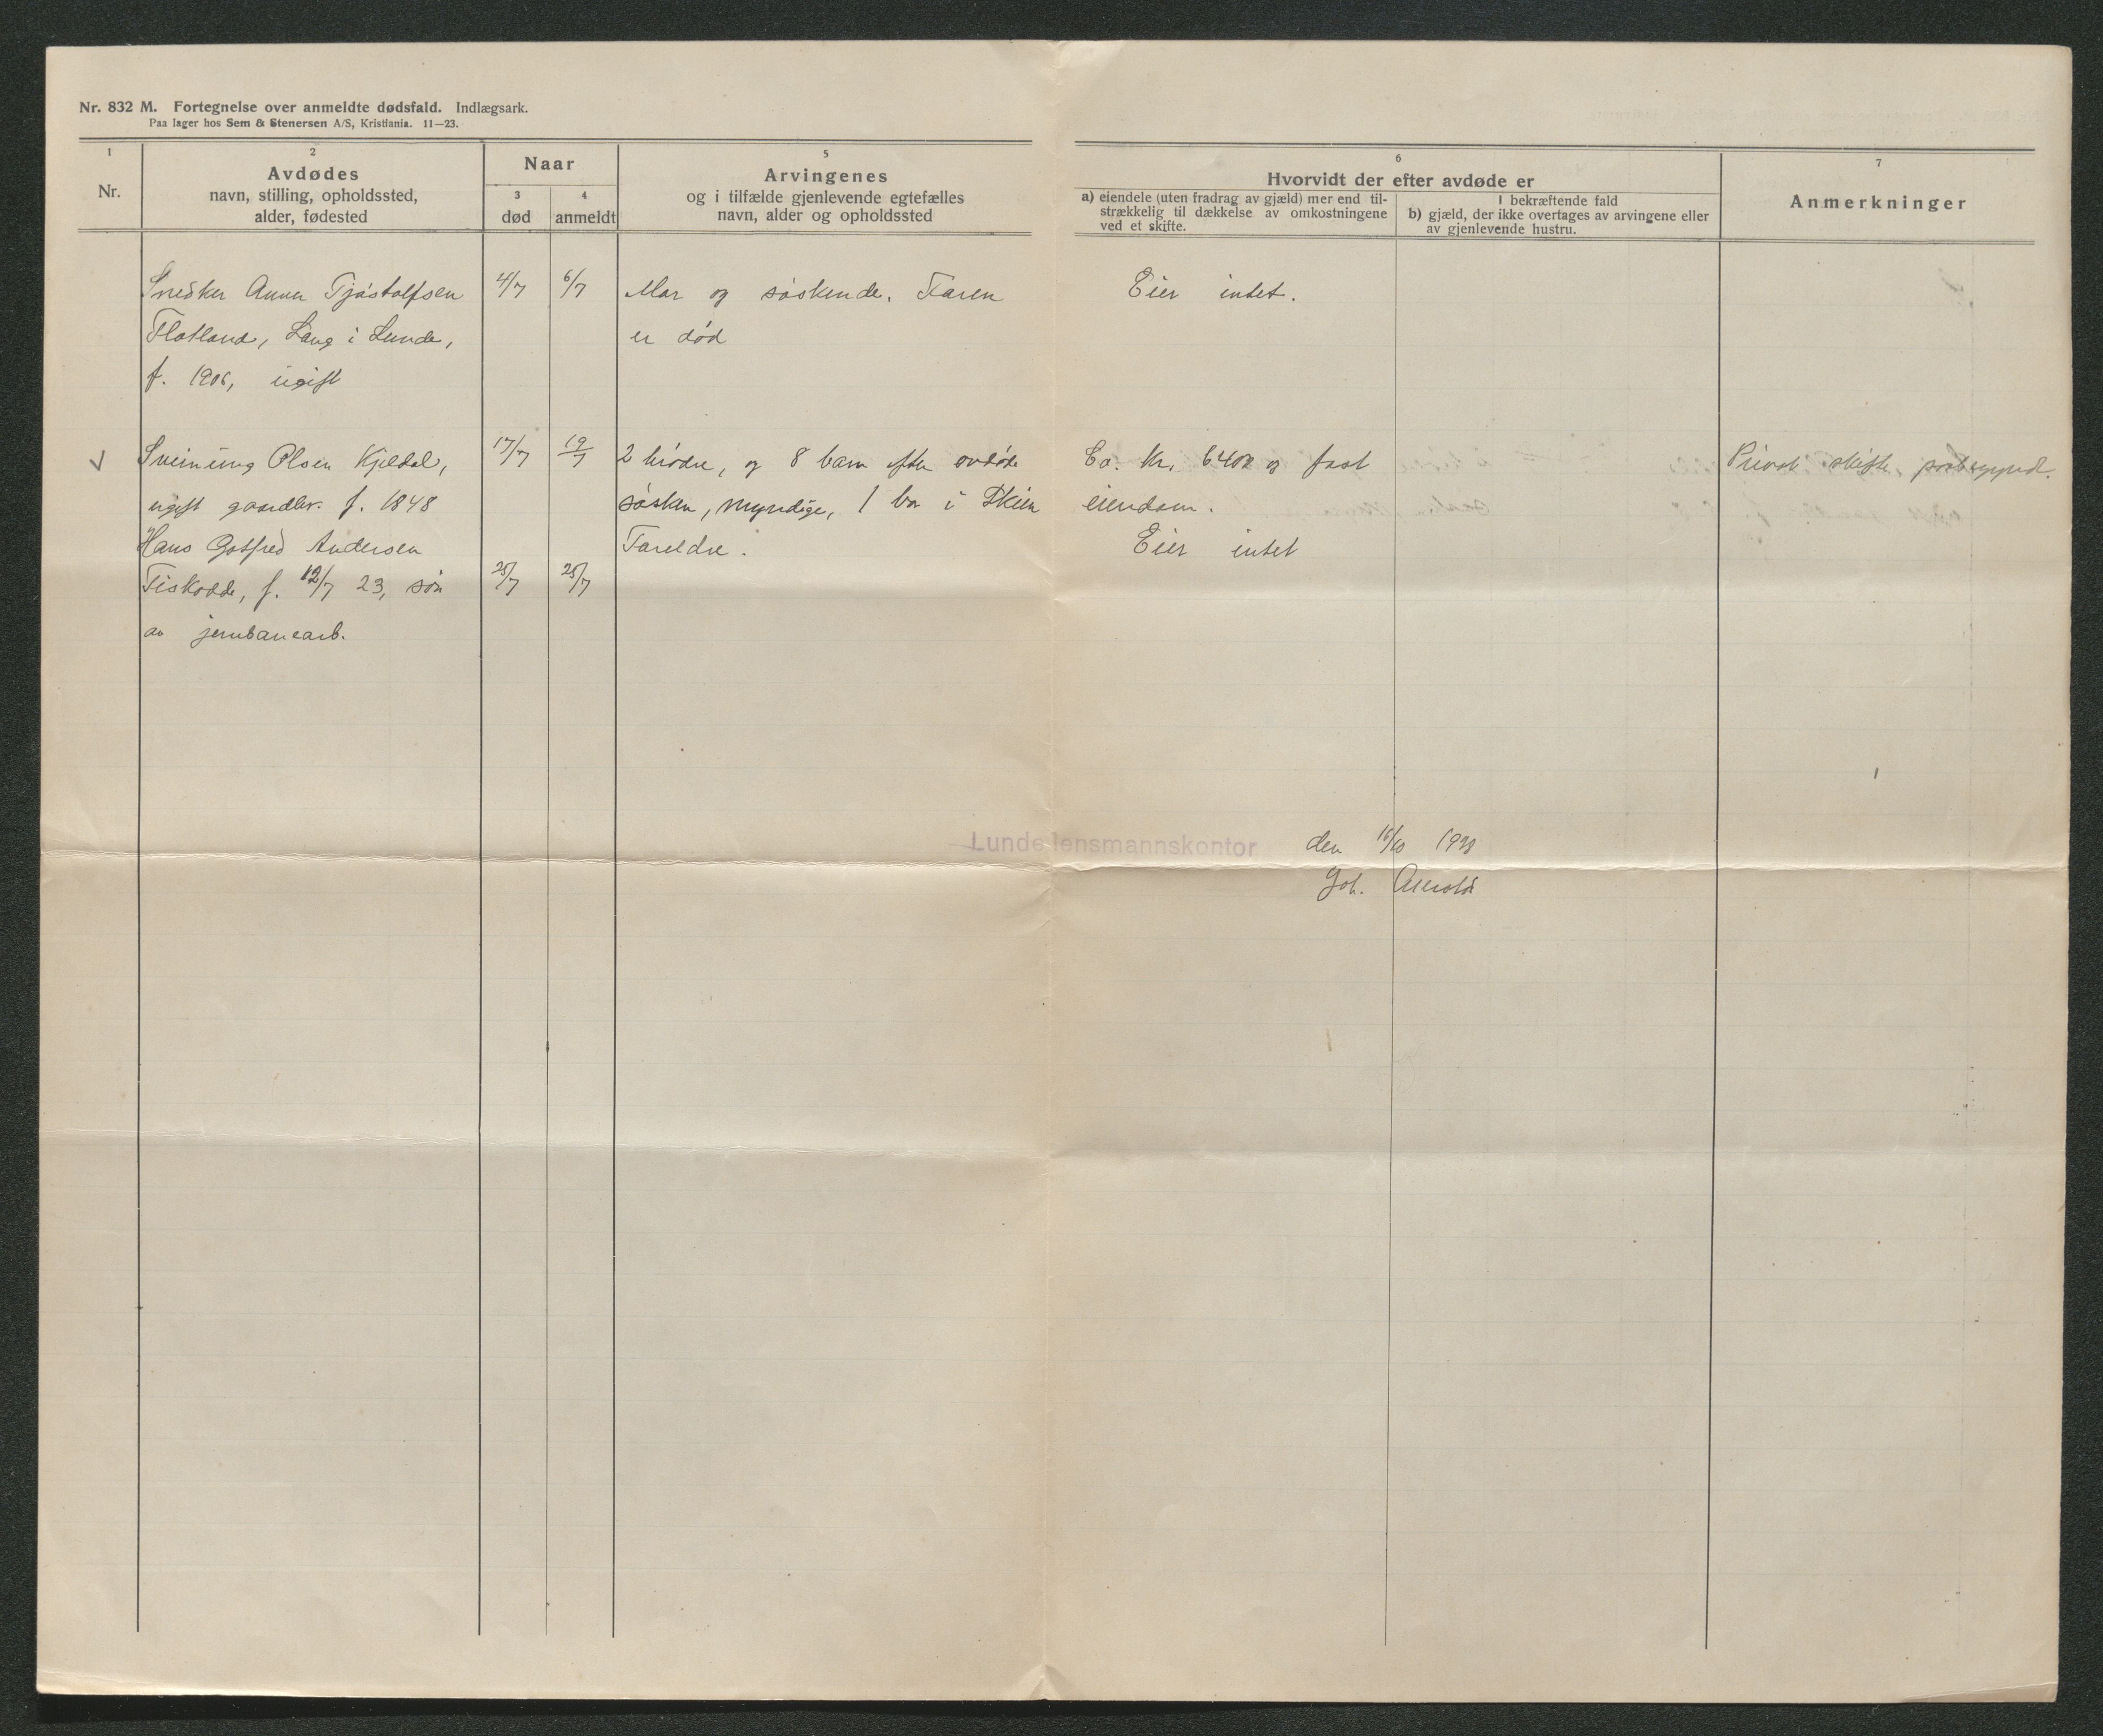 Nr. 832 M. Fortegnelse over anmeldte dødsfald. Indlægsark.
Paa lager hos Sem & Stenersen A/S, Kristiania. 11—23.
1
Nr.
2
Avdødes
navn, stilling, opholdssted,
alder, fødested
Naar
3
død
4
anmeldt
5
Arvingenes
og i tilfælde gjenlevende egtefælles
navn, alder og opholdssted
6
Hvorvidt der efter avdøde er
a) eiendele (uten fradrag av gjæld) mer end til-
strækkelig til dækkelse av omkostningene
ved et skifte.
I bekræftende fald
b) gjæld, der ikke overtages av arvingene eller
av gjenlevende hustru.
7
Anmerkninger
Snedker Tjøstolfsen 4/7 6/7 Mor og søskende. Faren Eier intet.
Flatland, i Lunde, er død
f. 1906, ugift
Sveinung Olsen Kjeldal, 17/7 19/7 2 brødre, og 8 barn efter avdøde Ca. kr. 6400 og fast Privat skifte paabegyndt.
ugift gaardbr. f. 1848 søsken, myndige, 1 bor i Skien eiendom.
Hans Gotfred Andersen Foreldre. Eier intet
Fiskodde, f. 12/7 23, søn 25/7 25/7
av jernbanearb.
Lunde lensmannskontor den 16/10 1923
Joh.